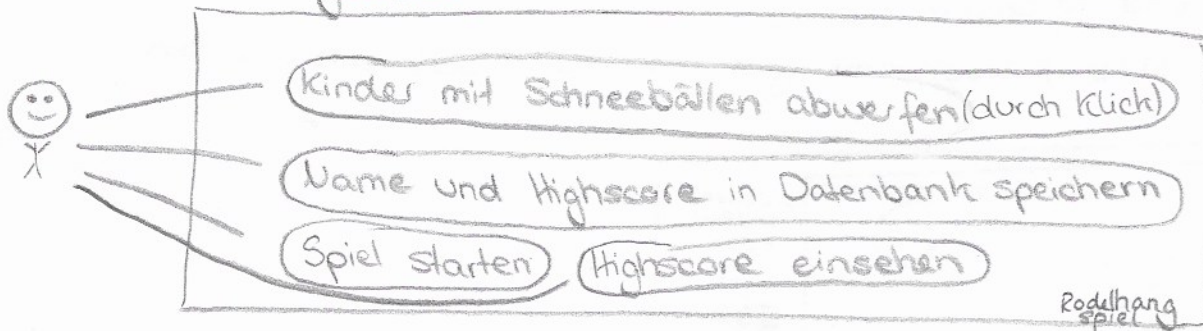 Kinder mit Schneebällen abwerfen (durch Klick)
Name und Highscore in Datenbank speichern
Spiel starten
Highscore einsehen
Rodelhang
spiel